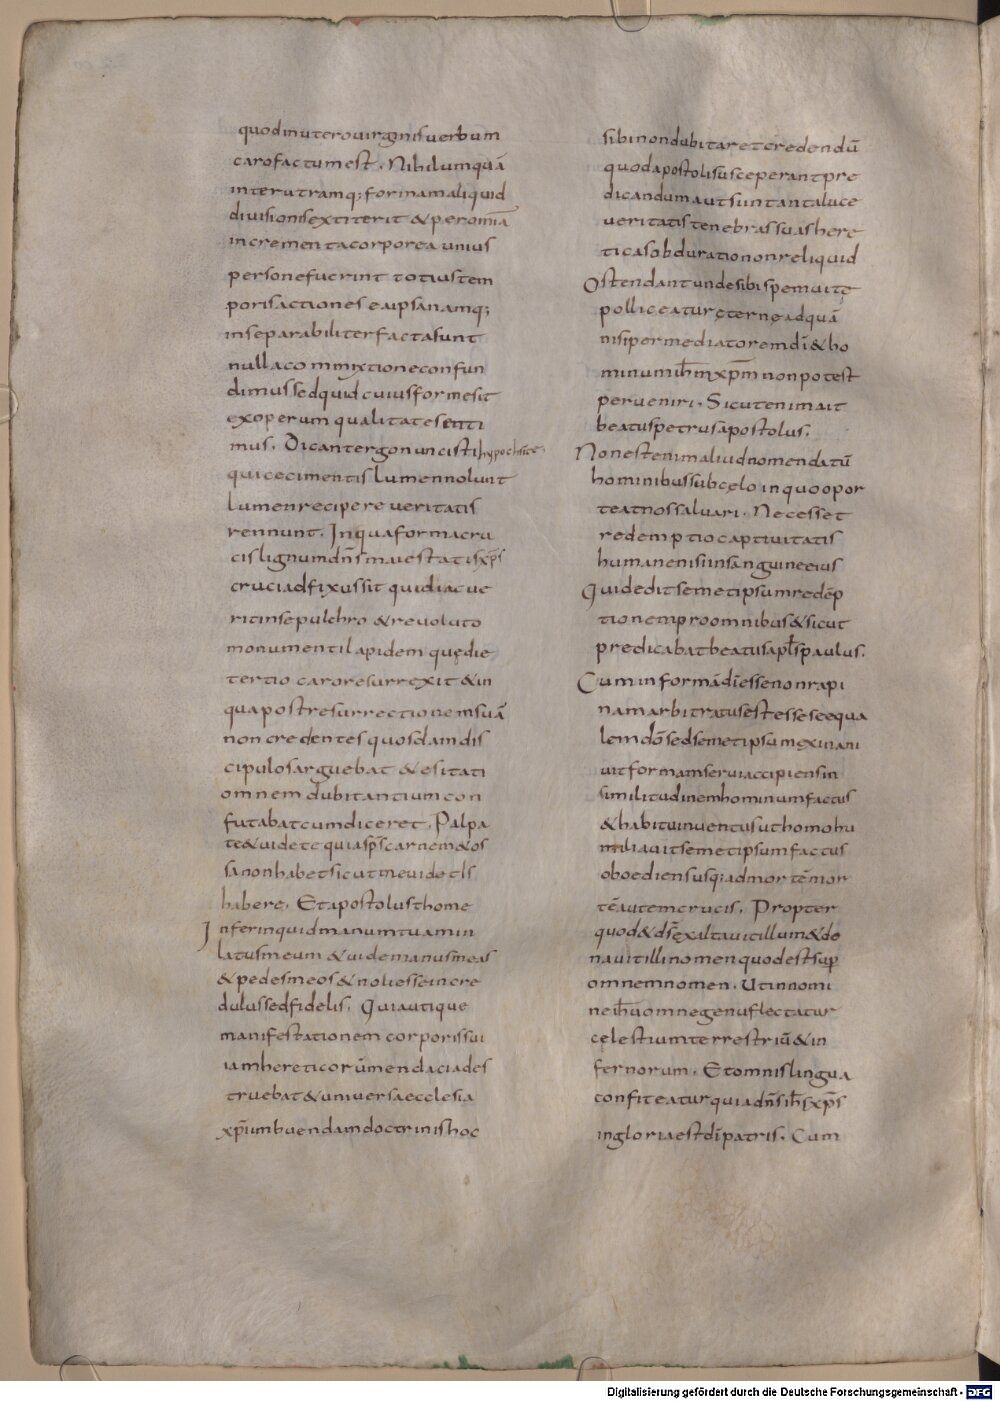 quodinuterouirginisuerbum
carofactumest. Nihilumquā
interutramq; formamaliquid
diuisionisextiterit &peromīa
incrementacorporea unius
personefuerint totiustem
porisactiones eaipsanamq;
inseparabiliterfactasunt
nullacommixtioneconfun
dimussedquidcuiusformesit
exoperumqualitatesenti
mus. Dicantergonuncisti hypocrite
quicecimentislumennolunt
lumenrecipereueritatis
rennunt. Inquaformacru
cislignumdn̄smaiestatisxp̄s
cruciadfixussit quidiacue
ritinsepulchro &reuoluto
monumentilapidem quędie
tertio caroresurrexit &in
quapostresurrectionemsuā
noncredentesquosdamdis
cipulosarguebat &esitati
omnem dubitantium con
futabatcumdiceret. Palpa
te&uidete quiasps̄carnem&os
sanonhabetsicutmeuidetis
habere. Etapostolusthome
Inferinquidmanumtuamin
latusmeum &uidemanusmeas
&pedesmeos&noliesseincre
dulussedfidelis. Quiautique
manifestationem corporissui
iamhereticorūmendaciades
truebat&uniuersaecclesia
xp̄iumbuendamdoctrinishoc
sibinondubitaretcredendū
quodapostolisusceperantpre
dicandumautsiuntantaluce
ueritatistenebrassuashere
ticasobdurationonreliquid
Ostendantundesibispemuitę
polliceaturęternęadquā
nisipermediatoremdī&ho
minumih̄mxp̄mnonpotest
perueniri. Sicutenimait
beatuspetrusapostolus.
Nonestenimaliudnomendatū
hominibussubcelo inquoopor
teatnossaluari. Necesset
redemptiocaptiuitatis
humanenisiinsanguineeius
Quideditsemetipsumredēp
tionemproomnibus&sicut
predicabatbeatusapl̄spaulus.
Cuminformādīessenonrapi
namarbitratusestesseseequa
lemdōsedsemetipsumexinani
uitformamseruiaccipiensin
similitudinemhominumfactus
&habituinuentusuthomohu
miliauitsemetipsumfactus
oboediensusq;admortēmor
tēautemcrucis. Propter
quod&ds̄exaltauitillum&do
nauitillinomenquodestsup̄
omnemnomen. Utinnomi
neih̄uomnegenuflectatur
cęlestiumterrestriū&in
fernorum. Etomnislingua
confiteaturquiadn̄sih̄sxp̄s
ingloriaestdīpatris. Cum
Digitalisierung gefördert durch die Deutsche Forschungsgemeinschaft - DFG